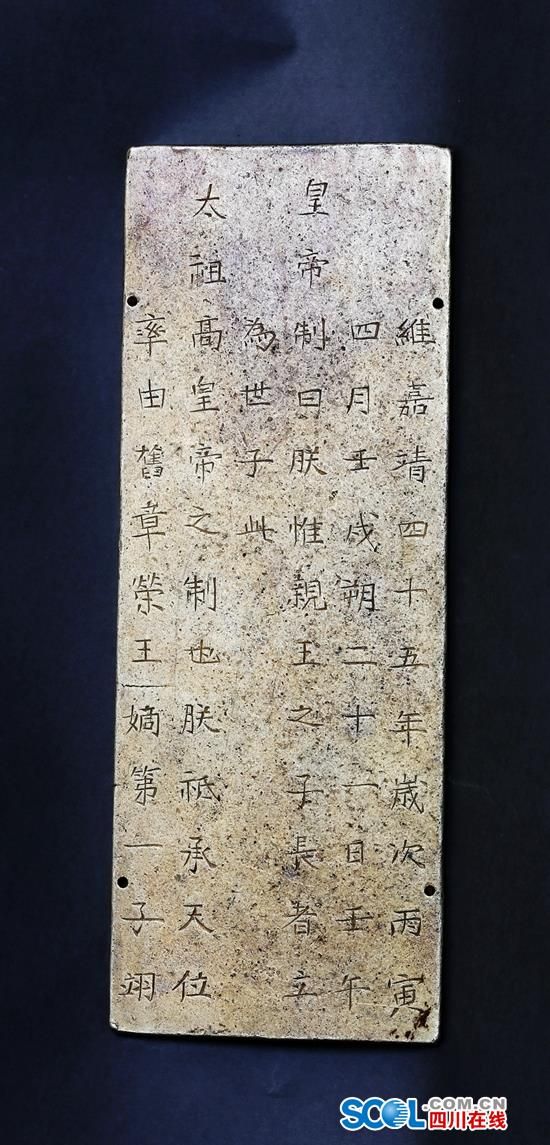 維嘉靖四十五年歲次丙寅
四月壬戌朔二十一日壬午
皇帝制曰朕惟親王之子長者立
為世子此
太祖高皇帝之制也朕祗承天位
率由舊章榮王嫡第一子翊
SCOL.COM.CN
四川在线